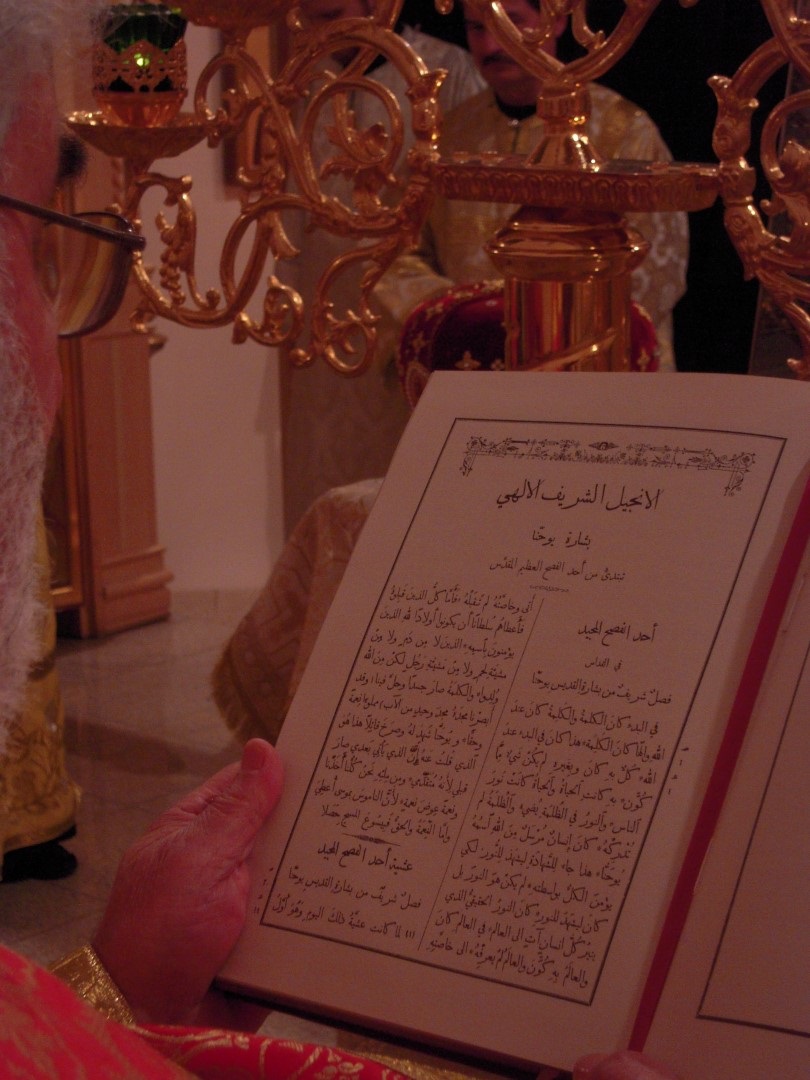 الانجيل الشريف الالهي
بشارة يوحنّا
تبتدئ من أحد الفصح العظيم المقدّس
أحد الفصح المجيد
في القداس
فصلٌ شريفٌ من بشارة القديس يوحنّا
في البدء كانَ الكلمةُ والكلمةُ كانَ عندَ
اللهِ وإلهًا كانَ الكلمة٭ هذا كانَ في البدء عند
الله٭ كلٌّ بهِ كانَ وبغيرهِ لم يكُنْ شيءٌ ممَّا
كُوِّنَ٭ بهِ كانتِ الحياةُ والحياةُ كانَتْ نُورَ
الناس٭ والنورُ في الظُّلمَةِ يُضيءُ والظُّلمَةُ لم
تُدْرِكْهُ٭ كانَ إنسانٌ مُرْسَلٌ مِنَ اللهِ أسمُهُ
يُوحَنَّا٭ هذا جاءَ للشَّهادَةِ ليشهَدَ للنُّورِ لكي
يؤمِنَ الكلُّ بواسطتِهِ٭ لم يكُنْ هوَ النورَ بل
كانَ ليشهَدَ للنورِ٭ كانَ النورُ الحقيقيُّ الذي
يُنيرُ كُلَّ إنسانٍ آتٍ الى العالم٭ في العالَمِ كانَ
والعالَمُ بِهِ كُوِّنَ والعالَمُ لم يَعرِفْهُ٭ الى خاصَّتِهِ
أتى وخاصَّتُهُ لم تَقبَلْهُ٭ فأمَّا كلُّ الذينَ قبِلوهُ
فأعطاهُم سُلطانًا أن يكونوا أولادًا للهِ الذينَ
يؤمنونَ بأسمِهِ٭ الذينَ لا مِن دَمٍ ولا مِن
مشيَّةِ لحمٍ ولا مِنْ مشيَّةِ رَجُلٍ لكنْ مِنَ اللهِ
وُلِدوا٭ والكلمةُ صارَ جسدًا وحلَّ فينا (وقد
أبصَرْنا مجدَهُ مجدَ وحيدٍ من الآب) مملوءًا نِعمةً
وحقًّا٭ ويوحنَّا شَهِدَ لهُ وصرَخَ قائلًا هذا هوَ
الذي قُلتُ عَنهُ إنَّ الذي يأتي بعدي صارَ
قبلي لأنَّهُ مُتقدِّمي٭ ومن مِلئِهِ نَحنُ كُلُّنا أخَذْنا
ونعمةً عِوَضَ نعمةٍ٭ لأنَّ الناموسَ بموسى أُعطيَ
وأمَّا النِّعمَةُ والحقُّ فبيسوعَ المسيحِ حصَلا
عشية أحد الفصح المجيد
فصلٌ شريفٌ من بشارة القديس يوحنّا
لمَّا كانت عشيَّةُ ذلكَ اليومِ وهوَ أوَّلُ